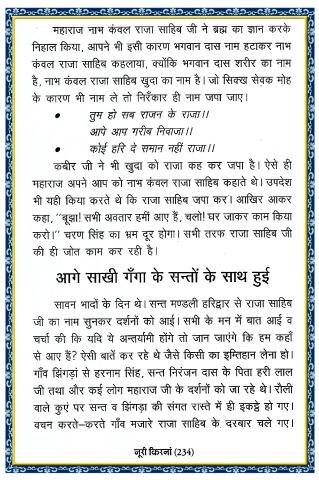 महाराज नाभ कंवल राजा साहिब जी ने ब्रह्म का ज्ञान करके
निहाल किया, आपने भी इसी कारण भगवान दास नाम हटाकर नाभ
कंवल राजा साहिब कहलाया, क्योंकि भगवान दास शरीर का नाम
है, नाभ कंवल राजा साहिब खुदा का नाम है। जो सिक्ख सेवक मोह
के कारण भी नाम ले तो निरँकार ही नाम जपा जाए।
• तुम हो सब राजन के राजा।।
आपे आप गरीब निवाजा।।
• कोई हरि दे समान नहीं राजा।।
कबीर जी ने भी खुदा को राजा कह कर जपा है। ऐसे ही
महाराज अपने आप को नाभ कंवल राजा साहिब कहाते थे। उपदेश
भी यही किया करते थे कि राजा साहिब जपा कर। आखिर आकर
कहा, "बूझा! सभी अवतार हमीं आए हैं, चलो! घर जाकर काम किया
करो।" चरण सिंह का भ्रम दूर होगा। सभी तरफ राजा साहिब जी
की ही जोत काम कर रही है।
आगे साखी गँगा के सन्तों के साथ हुई
सावन भादों के दिन थे। सन्त मण्डली हरिद्वार से राजा साहिब
जी का नाम सुनकर दर्शनों को आई। सभी के मन में बात आई व
चर्चा की कि यदि ये अन्तर्यामी होंगे तो जान जाएंगे कि हम कहाँ
से आए हैं? ऐसी बातें कर रहे थे जैसे किसी का इम्तिहान लेना हो।
गाँव झिंगड़ां से हरनाम सिंह, सन्त निरंजन दास के पिता हरी लाल
जी तथा और कई लोग महाराज जी के दर्शनों को जा रहे थे। रौली
वाले कुएं पर सन्त व झिंगड़ा की संगत रास्ते में ही इकट्ठे हो गए।
वचन करते-करते गाँव मजारे राजा साहिब के दरबार चले गए।
नूरी किरनां (234)